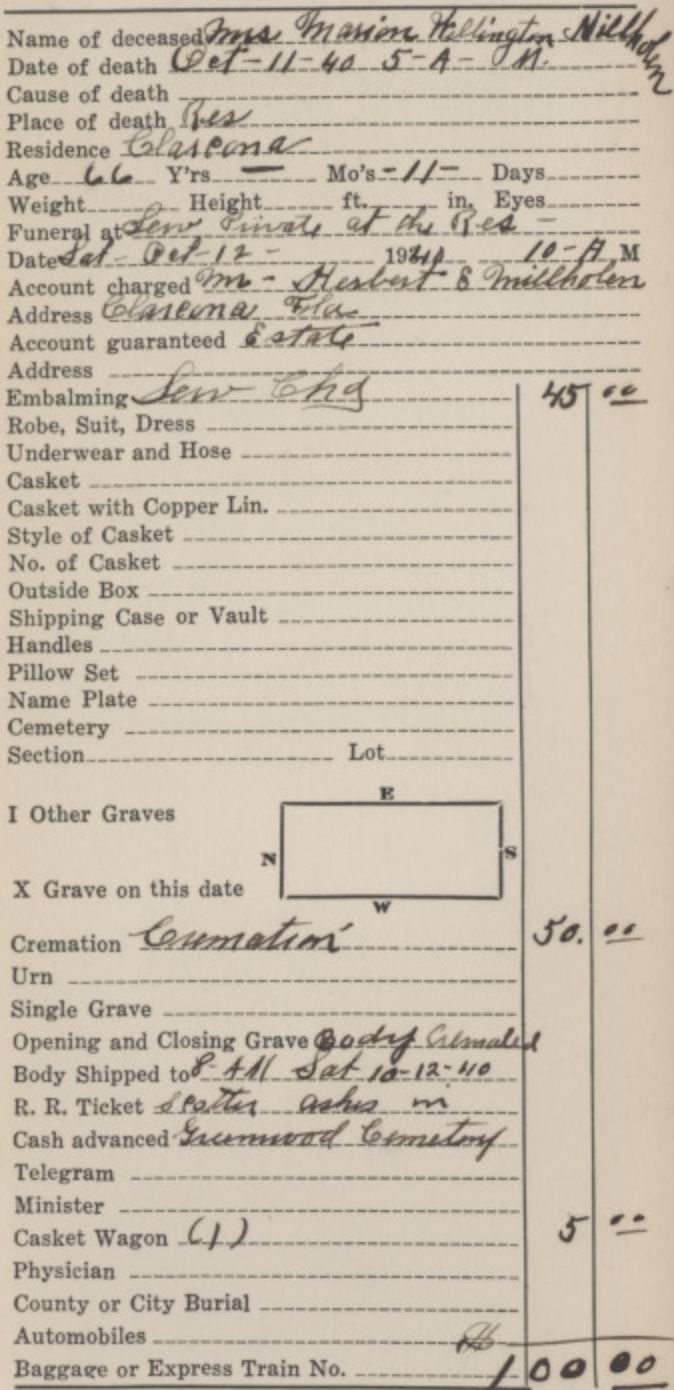 Name of deceased Mrs Marion Wellington Millholen
Date of death Oct-11-40 5-A-M.
Cause of death
Place of death Res
Residence Clarcona
Age 66 Y'rs — Mo's -11- Days
Weight Height ft. in. Eyes
Funeral at Serv Private at the Res -
Date Sat - Oct-12 - 1940 10-A M
Account charged Mr - Herbert E Millholen
Address Clarcona Fla
Account guaranteed Estate
Address
Embalming Serv Chg 45 00
Robe, Suit, Dress
Underwear and Hose
Casket
Casket with Copper Lin.
Style of Casket
No. of Casket
Outside Box
Shipping Case or Vault
Handles
Pillow Set
Name Plate
Cemetery
Section Lot
E
I Other Graves
N S
X Grave on this date
W
Cremation Cremation 50. 00
Urn
Single Grave
Opening and Closing Grave Body Cremated
Body Shipped to 8-AM Sat 10-12-40
R. R. Ticket Scatter ashes in
Cash advanced Greenwood Cemetery
Telegram
Minister
Casket Wagon (1) 5 00
Physician
County or City Burial
Automobiles
Baggage or Express Train No. 100 00